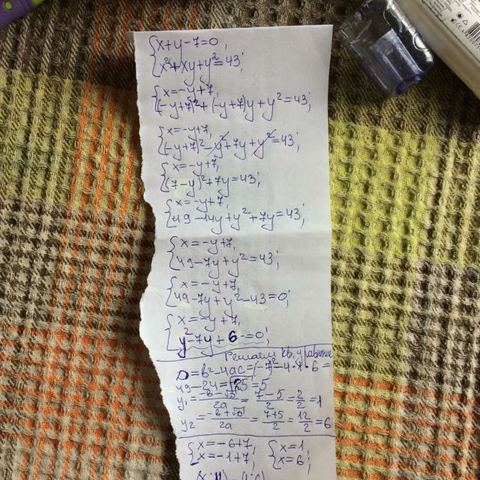 {x+y-7=0;
x²+xy+y²=43;
{x=-y+7,
(-y+7)²+(-y+7)y+y²=43;
{x=-y+7,
(-y+7)²-y²+7y+y²=43;
{x=-y+7,
(7-y)²+7y=43;
{x=-y+7,
49-14y+y²+7y=43;
{x=-y+7,
49-7y+y²=43;
{x=-y+7,
49-7y+y²-43=0;
{x=-y+7,
y²-7y+6=0;
Решаем кв. уравнение
D=b²-4ac=(-7)²-4·1·6=
49-24=√25=5
y₁=(-b-√D)/2a=(7-5)/2=2/2=1
y₂=(-b+√D)/2a=(7+5)/2=12/2=6
{x=-6+7, {x=1
x=-1+7; x=6;